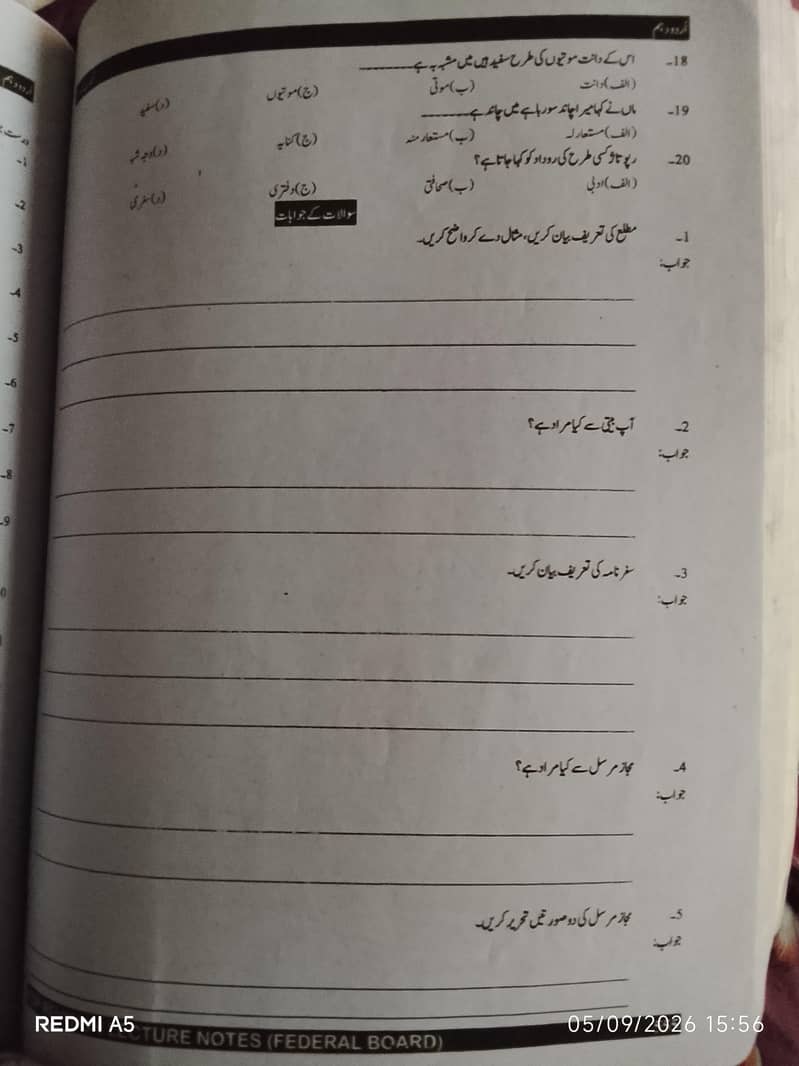 اُردو دہم
18۔ اس کے دانت موتیوں کی طرح سفید ہیں میں مشبہ بہ ہے ________
(الف) دانت (ب) موتی (ج) موتیوں (د) سفید
19۔ ماں نے کہا میرا چاند سو رہا ہے میں چاند ہے ________
(الف) مستعار لہ (ب) مستعار منہ (ج) کنایہ (د) وجہ شبہ
20۔ رپوتاژ کسی طرح کی روداد کو کہا جاتا ہے؟
(الف) ادبی (ب) صحافتی (ج) دفتری (د) سفری
سوالات کے جوابات
1۔ مطلع کی تعریف بیان کریں، مثال دے کر واضح کریں۔
جواب:
2۔ آپ بیتی سے کیا مراد ہے؟
جواب:
3۔ سفر نامہ کی تعریف بیان کریں۔
جواب:
4۔ مجاز مرسل سے کیا مراد ہے؟
جواب:
5۔ مجاز مرسل کی دو صورتیں تحریر کریں۔
جواب:
LECTURE NOTES (FEDERAL BOARD)
REDMI A5
05/09/2026 15:56
اُردو دہم
1۔
2۔
3۔
4۔
5۔
6۔
7۔
8۔
9۔